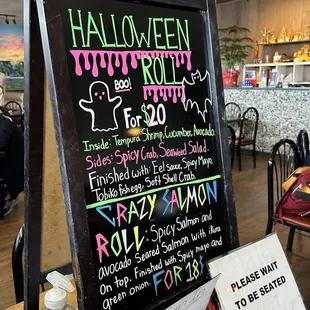 HALLOWEEN
ROLL
BOO!
For $20
Inside: Tempura Shrimp, Cucumber, Avocado
Sides: Spicy Crab, Seaweed Salad.
Finished with: Eel sauce, Spicy Mayo,
Tobiko fish egg, Soft Shell Crab.
CRAZY SALMON
ROLL: Spicy Salmon and
avocado Seared Salmon with ikura
on top. Finished with Spicy mayo and
green onion. FOR 18$
PLEASE WAIT
TO BE SEATED